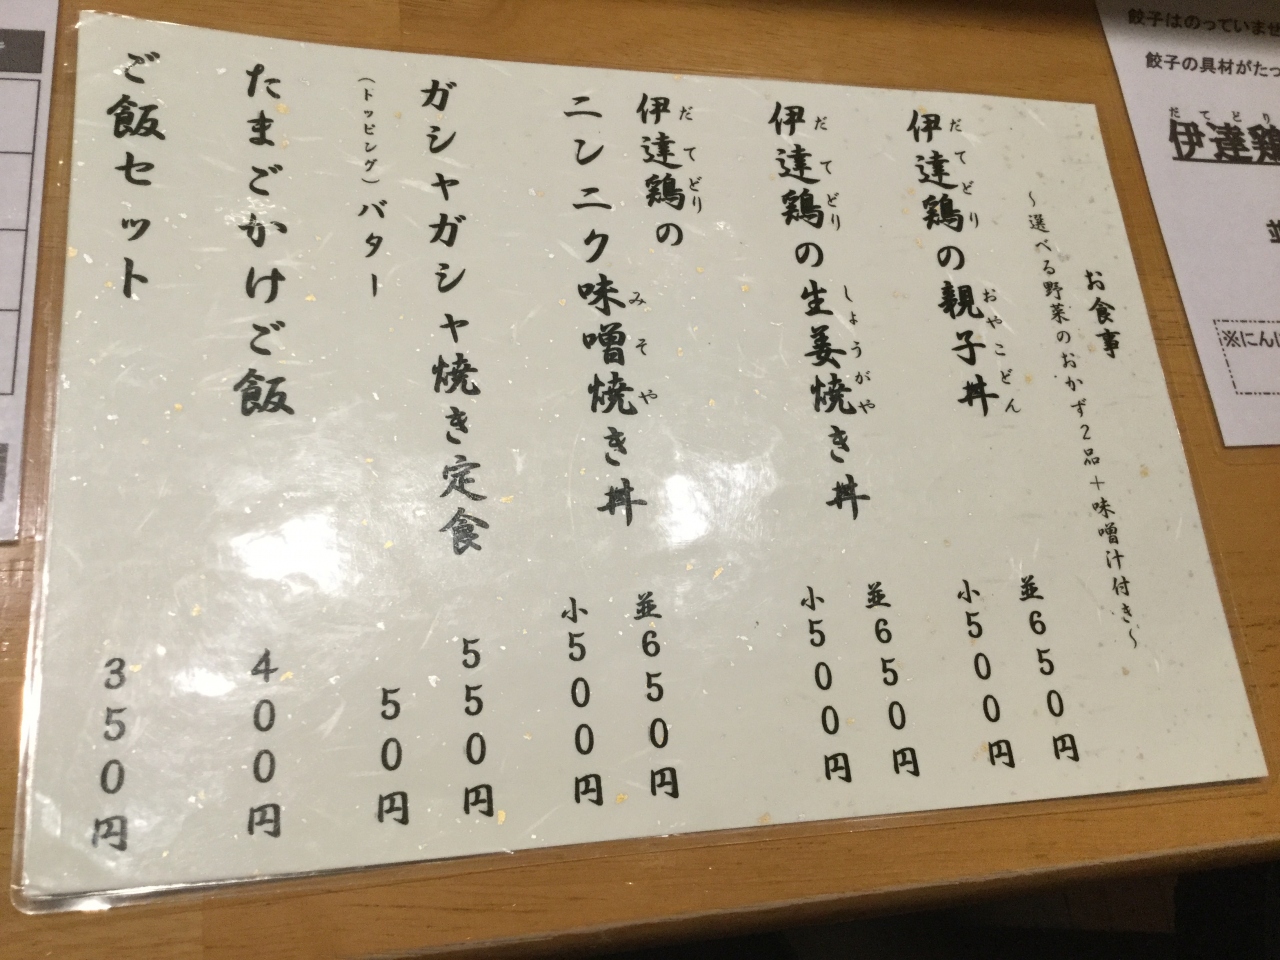 お食事
～選べる野菜のおかず2品＋味噌汁付き～
伊達鶏の親子丼
だてどり おやこどん
並650円
小500円
伊達鶏の生姜焼き丼
だてどり しょうがや
並650円
小500円
伊達鶏の
だてどり
ニンニク味噌焼き丼
みそや
並650円
小500円
ガシャガシャ焼き定食
550円
（トッピング）バター
50円
たまごかけご飯
400円
ご飯セット
350円
餃子はのっていませ
餃子の具材がたっ
だてどり
伊達鶏
並
※にんに